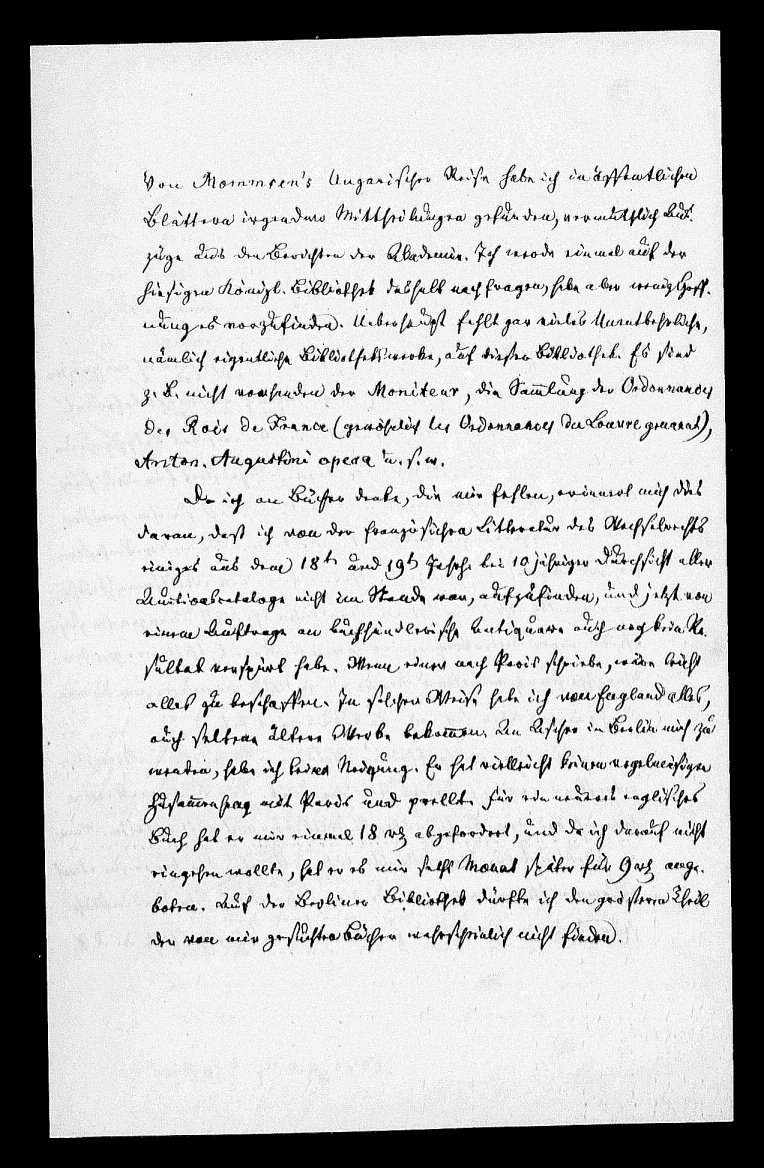 Von Mommsen's Ungarischer Reise habe ich in öffentlichen
Blättern irgendwo Mittheilungen gefunden, vermuthlich Aus-
züge aus den Berichten der Akademie. Ich werde einmal auf der
hiesigen Königl. Bibliothek deshalb nachfragen, habe aber wenig Hoff-
nung es vorzufinden. Ueberhaupt fehlt gar vieles Unentbehrliche,
nämlich eigentliche Bibliothekswerke, auf dieser Bibliothek. Es sind
z. B. nicht vorhanden der Moniteur, die Sammlung der Ordonnances
des Rois de France (gewöhnlich les Ordonnances du Louvre genannt),
Anton. Augustini opera u. s. w.
Da ich an Bücher denke, die mir fehlen, erinnert mich dies
daran, daß ich von der französischen Litteratur des Wechselrechts
einiges aus dem 18t und 19t Jahrh. bei 10 jähriger Durchsicht aller
Auctionscataloge nicht im Stande war, aufzufinden, und jetzt von
einem Auftrage an buchhändlerische Antiquare auch noch kein Re-
sultat verspürt habe. Wenn einer nach Paris schriebe, wäre leicht
alles zu beschaffen. In solcher Weise habe ich von England alles,
auch seltene ältere Werke bekommen. An Ascher in Berlin mich zu
wenden, habe ich keine Neigung. Er hat vielleicht keinen regelmäsigen
Zusammenhang mit Paris und prellt. Für ein neueres englisches
Buch hat er mir einmal 18 rh abgefordert, und da ich darauf nicht
eingehen wollte, hat er es mir sechs Monat später für 9 rh ange-
boten. Auf der Berliner Bibliothek dürfte ich den grösseren Theil
der von mir gesuchten Bücher wahrscheinlich nicht finden.